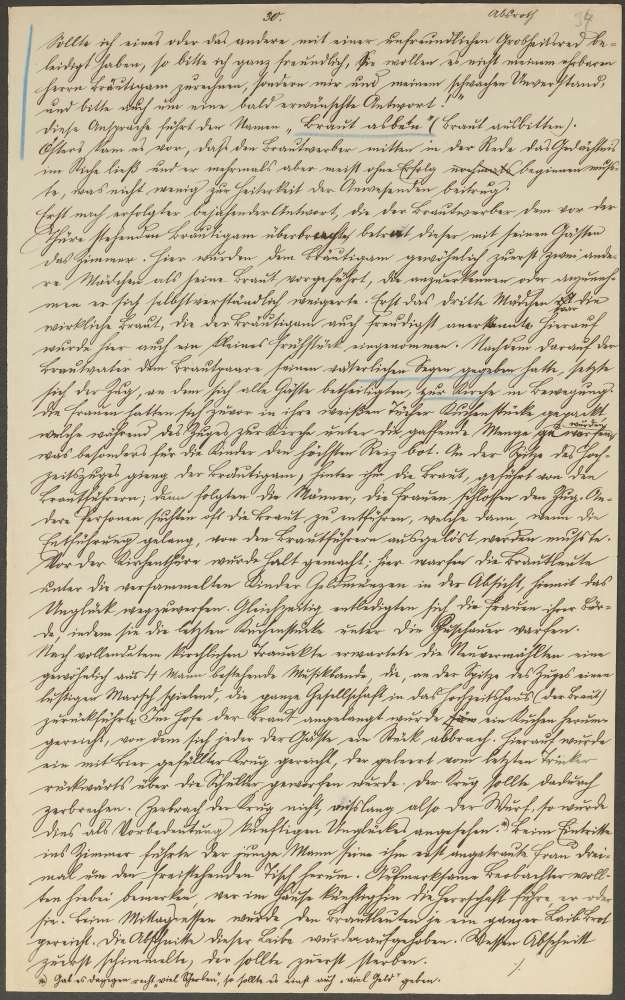 30. Absroth 34
Sollte ich eines oder das andere mit einer unfreundlichen Grobheitsred be-
leidigt haben, so bitte ich ganz freundlich, Sie wollen es nicht meinem ehrbaren
Herrn Bräutigam zurechnen, sondern mir und meinem schwachen Unverstand,
und bitte auch um eine bald erwünschte Antwort!"
Diese Ansprache führt den Namen „Braut asbetn" (Braut ausbitten).
Öfters kam es vor, daß den Brautwerber mitten in der Rede das Gedächtnis
im Stiche ließ und er mehrmals aber meist ohne Erfolg nochmals beginnen muß-
te, was nicht wenig zur Heiterkeit der Anwesenden beitrug.
Erst nach erfolgter bejahender Antwort, die der Brautwerber dem vor der
Thüre stehenden Bräutigam überbrachte, betrat dieser mit seinen Gästen
das Zimmer. Hier wurden dem Bräutigam gewöhnlich zuerst zwei ande-
re Mädchen als seine Braut vorgeführt, die anzuerkennen oder anzuneh-
men er sich selbstverständlich weigerte. Erst das dritte Mädchen war die
wirkliche Braut, die der Bräutigam auch freudigst anerkannte. Hierauf
wurde hier auch ein kleines Frühstück eingenommen. Nachdem darauf der
Brautvater dem Brautpaare seinen väterlichen Segen gegeben hatte, setzte
sich der Zug, an dem sich alle Gäste betheiligten, zur Kirche in Bewegung.
Die Frauen hatten sich zuvor in ihre weißen Tücher Kuchenstücke gepackt,
welche während des Zuges zur Kirche unter die gaffende Menge geworfen wurden,
was besonders für die Kinder den höchsten Reiz bot. An der Spitze des Hoch-
zeitszuges gieng der Bräutigam, hinter ihm die Braut, geführt von den
Brautführern; dann folgten die Männer, die Frauen schlossen den Zug. An-
dere Personen suchten oft die Braut zu entführen, welche dann, wenn die
Entführung gelang, von den Brautführern ausgelöst werden mußte.
Vor der Kirchenthüre wurde halt gemacht; hier warfen die Brautleute
unter die versammelten Kinder Geldmünzen in der Absicht, hiemit das
Unglück wegzuwerfen. Gleichzeitig entledigten sich die Frauen ihrer Bür-
de, indem sie die letzten Kuchenstücke unter die Zuschauer warfen.
Nach vollendetem kirchlichen Trauakte erwartete die Neuvermählten eine
gewöhnlich aus 4 Mann bestehende Musikbande, die, an der Spitze des Zuges einen
lustigen Marsch spielend, die ganze Gesellschaft in das Hochzeitshaus (der Braut)
zurückführte. Im Hofe der Braut angelangt wurde ein Kuchen herum-
gereicht, von dem sich jeder der Gäste ein Stück abbrach. Hierauf wurde
ein mit Bier gefüllter Krug gereicht, der geleert vom letzten Trinker
rückwärts über die Schulter geworfen wurde. Der Krug sollte dadurch
zerbrechen. Zerbrach der Krug nicht, mißlang also der Wurf, so wurde
dies als Vorbedeutung künftigen Unglückes angesehen.*) Beim Eintritte
ins Zimmer führte der junge Mann seine ihm erst angetraute Frau drei-
mal um den freistehenden Tisch herum. Aufmerksame Beobachter woll-
ten hiebei bemerken, wer im Hause künftighin die Herrschaft führe, er oder
sie. Beim Mittagessen wurde den Brautleuten je ein ganzer Laib Brot
gereicht. Die Abschnitte dieser Laibe wurden aufgehoben. Wessen Abschnitt
zuerst schimmelte, der sollte zuerst sterben. ./.
*) Gab es dagegen recht „viel Scherben", so sollte es einst auch „viel Geld" geben.